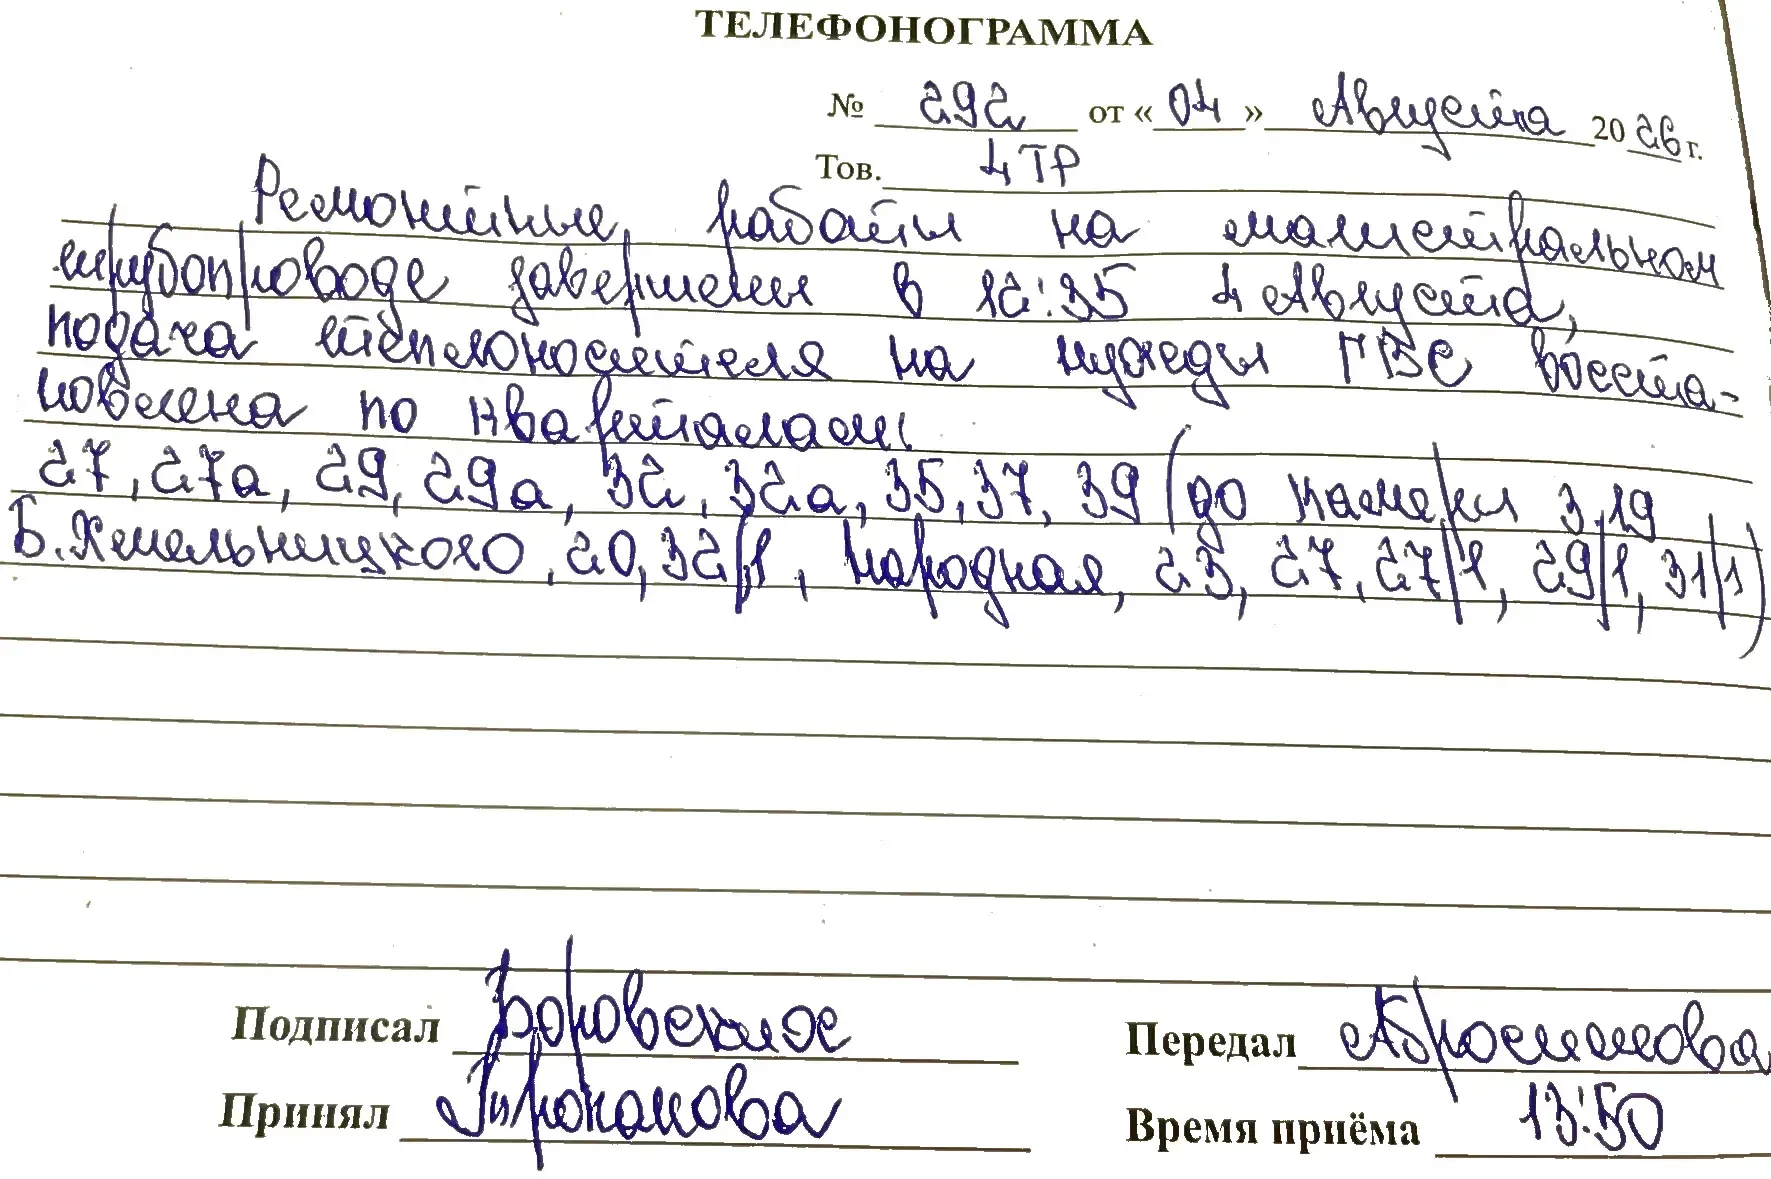 ТЕЛЕФОНОГРАММА
№ 292 от « 04 » Августа 2026 г.
Тов. 4 ТР
Ремонтные работы на магистральном
трубопроводе завершены в 12:35 4 Августа,
подача теплоносителя на нужды ГВС восста-
новлена по кварталам:
27, 27а, 29, 29а, 32, 32а, 35, 37, 39 (до камеры 3.19
Б.Хмельницкого, 20, 32/1, Народная, 23, 27, 27/1, 29/1, 31/1)
Подписал Боровских Передал Абросимова
Принял Труханова Время приёма 13:50